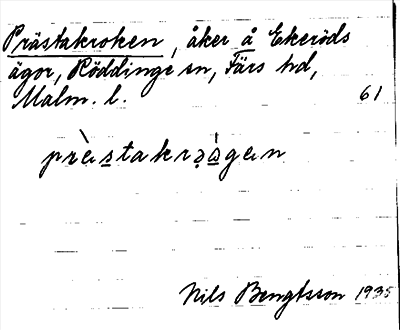 Prästakroken, åker å Ekeröds
ägor, Röddinge sn, Färs hd,
Malm. l. 61
Nils Bengtsson 1935